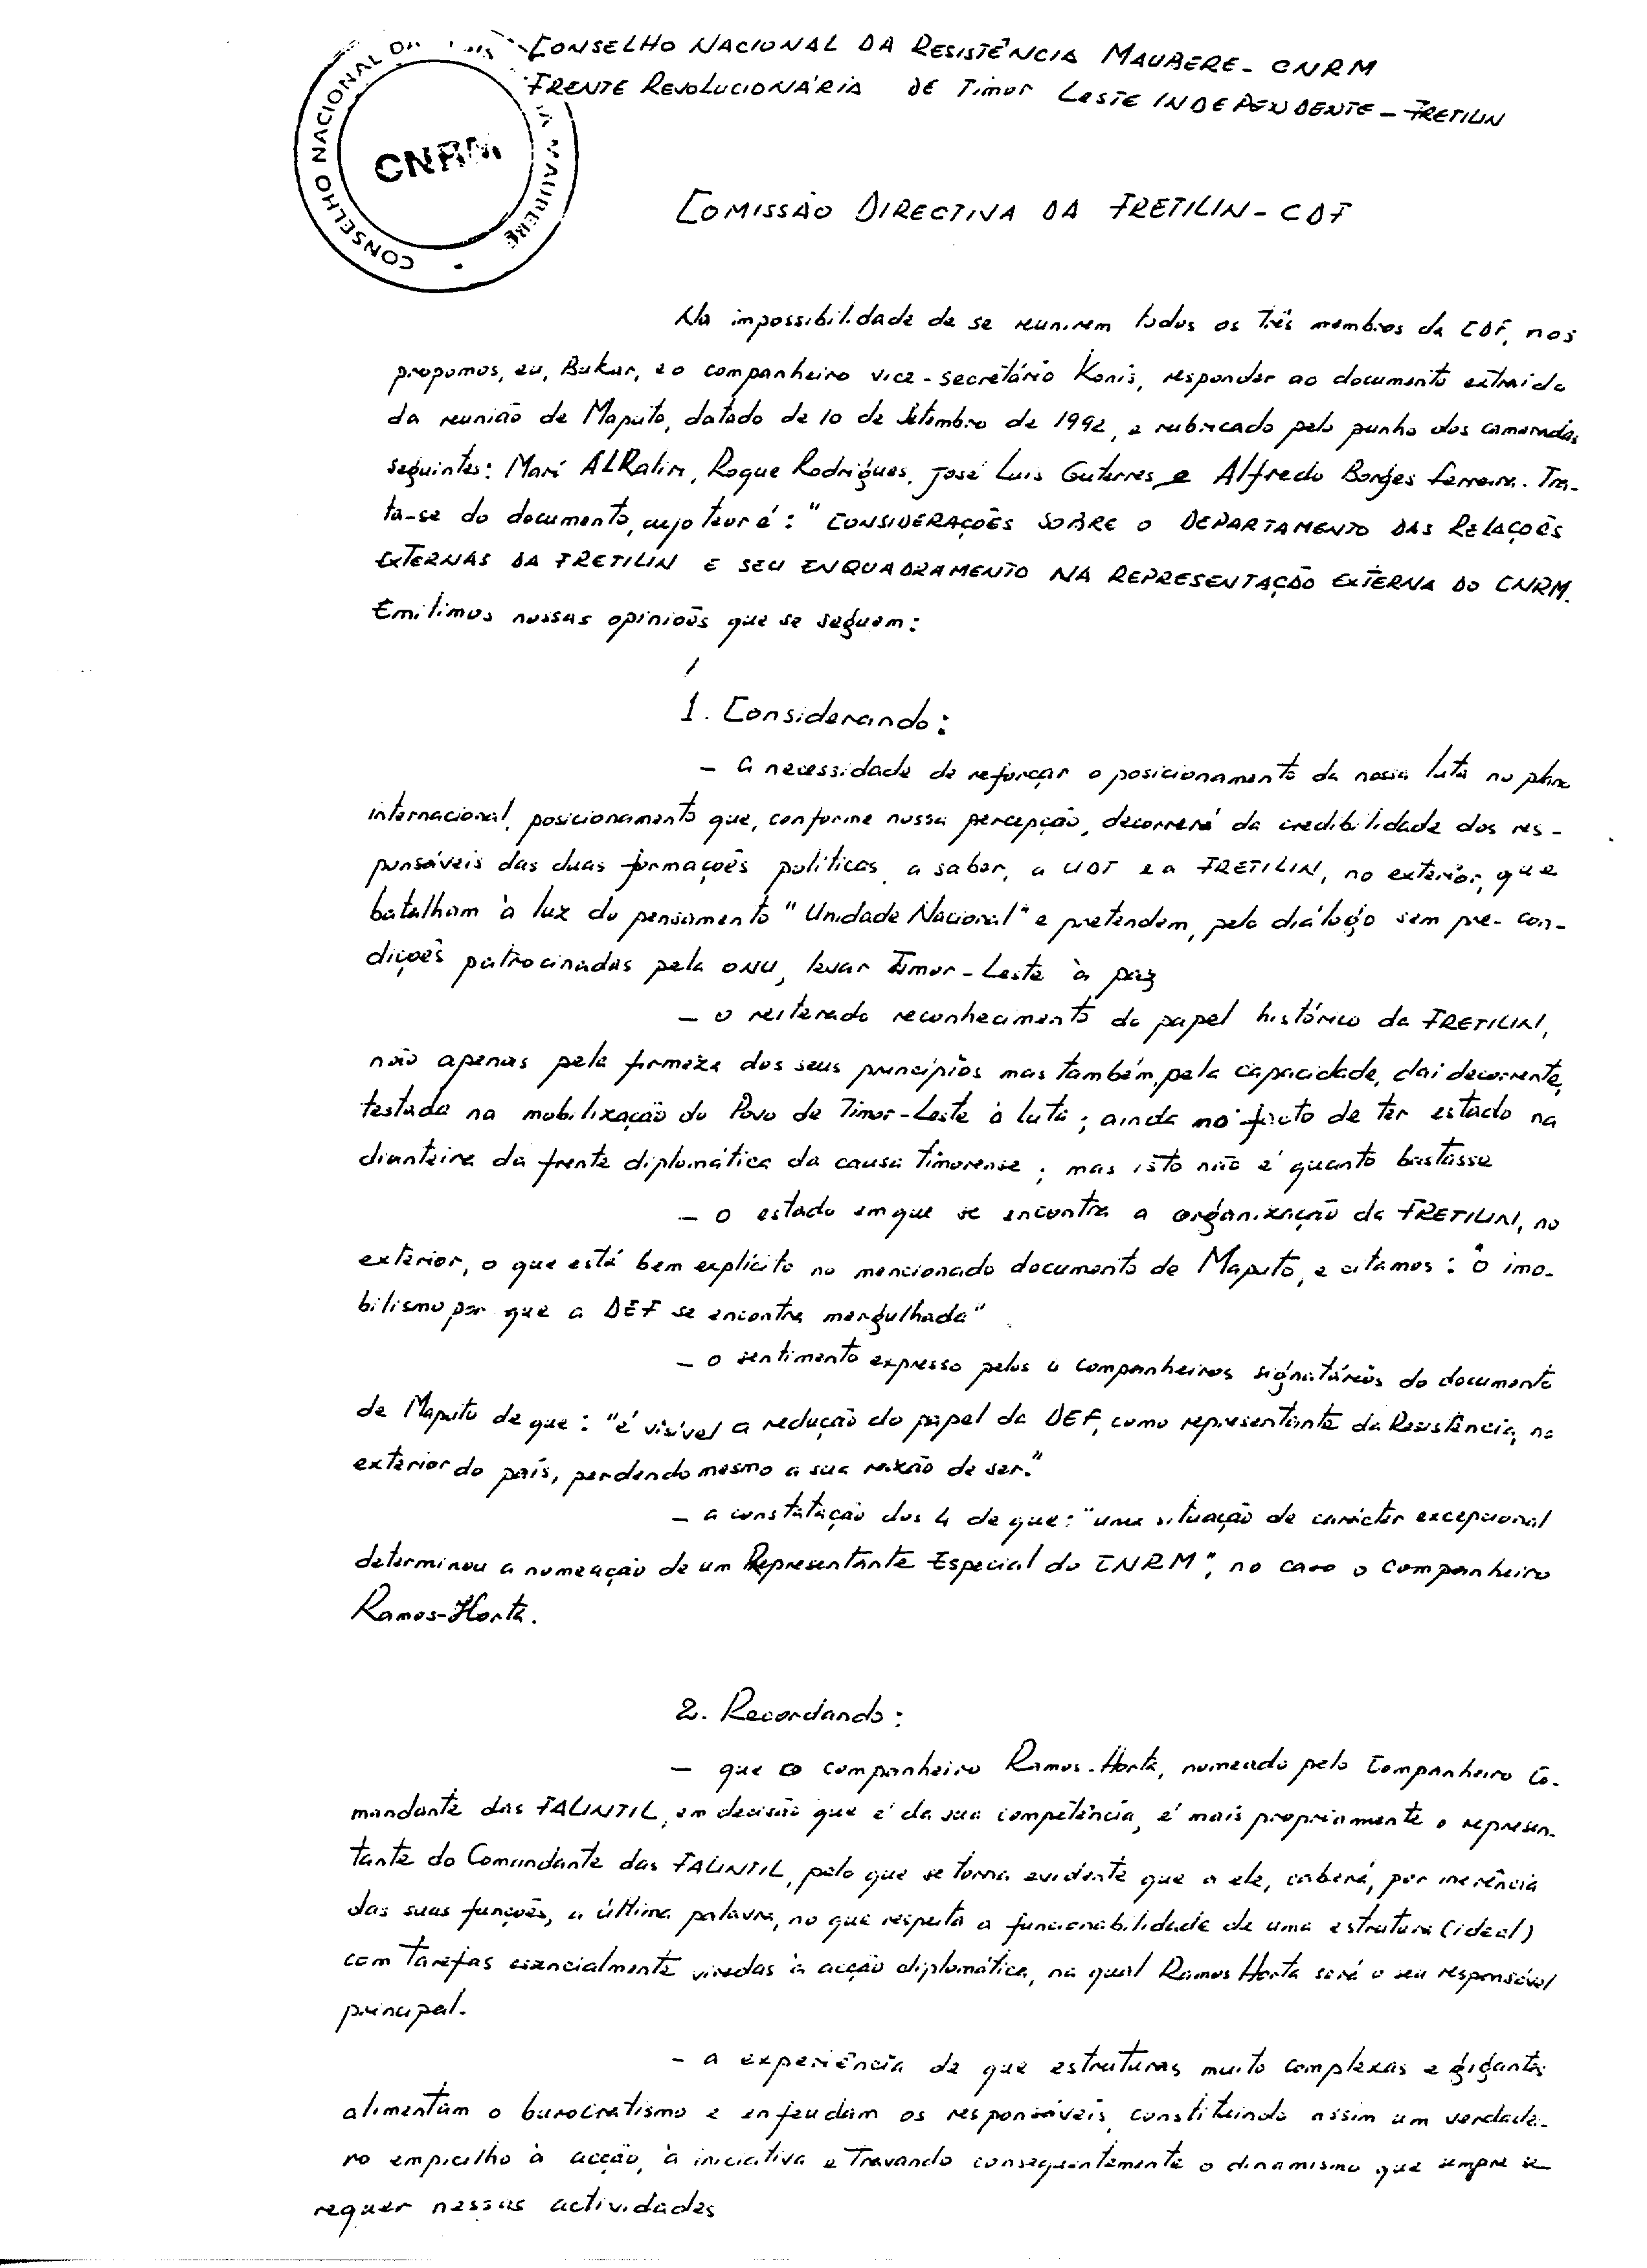 CONSELHO NACIONAL DA RESISTÊNCIA MAUBERE - CNRM
FRENTE REVOLUCIONÁRIA DE Timor LESTE INDEPENDENTE - FRETILIN
CONSELHO NACIONAL DA MAUBERE
CNRM
COMISSÃO DIRECTIVA DA FRETILIN - CDF
Na impossibilidade de se reunirem todos os três membros da CDF, nos
propomos, eu, Bukar, e o companheiro vice-secretário Konis, responder ao documento extraído
da reunião de Maputo, datado de 10 de Setembro de 1992, e rubricado pelo punho dos camaradas
seguintes: Mari ALKatiri, Roque Rodrigues, José Luis Guterres e Alfredo Borges Ferreira. Tra-
ta-se do documento, cujo teor é: "CONSIDERAÇÕES SOBRE O DEPARTAMENTO DAS RELAÇÕES
EXTERNAS DA FRETILIN E SEU ENQUADRAMENTO NA REPRESENTAÇÃO EXTERNA DO CNRM.
Emitimos nossas opiniões que se seguem:
1. Considerando:
- a necessidade de reforçar o posicionamento da nossa luta no plano
internacional, posicionamento que, conforme nossa percepção, decorrerá da credibilidade dos res-
ponsáveis das duas formações políticas, a saber, a UDT e a FRETILIN, no exterior, que
batalham à luz do pensamento "Unidade Nacional" e pretendem, pelo diálogo sem pre-con-
dições patrocinadas pela ONU, levar Timor-Leste à paz
- o reiterado reconhecimento do papel histórico da FRETILIN,
não apenas pela firmeza dos seus princípios mas também, pela capacidade, daí decorrente,
testada na mobilização do Povo de Timor-Leste à luta; ainda no facto de ter estado na
dianteira da frente diplomática da causa timorense; mas isto não é quanto bastasse
- o estado em que se encontra a organização da FRETILIN, no
exterior, o que está bem explícito no mencionado documento de Maputo, e citamos: "o imo-
bilismo por que a DEF se encontra mergulhada"
- o sentimento expresso pelos 4 companheiros signatários do documento
de Maputo de que: "é visível a redução do papel da DEF, como representante da Resistência, no
exterior do país, perdendo mesmo a sua razão de ser."
- a constatação dos 4 de que: "uma situação de carácter excepcional
determinou a nomeação de um Representante Especial do CNRM", no caso o companheiro
Ramos-Horta.
2. Recordando:
- que o companheiro Ramos-Horta, nomeado pelo Companheiro Co-
mandante das FALINTIL, em decisão que é da sua competência, é mais propriamente o represen-
tante do Comandante das FALINTIL, pelo que se torna evidente que a ele, caberá, por inerência
das suas funções, a última palavra, no que respeita a funcionabilidade de uma estrutura (ideal)
com tarefas essencialmente viradas à acção diplomática, na qual Ramos Horta será o seu responsável
principal.
- a experiência de que estruturas muito complexas e gigantes
alimentam o burocratismo e enfeudam os responsáveis, constituindo assim um verdadei-
ro empecilho à acção, à iniciativa e travando consequentemente o dinamismo que sempre se
requer nessas actividades